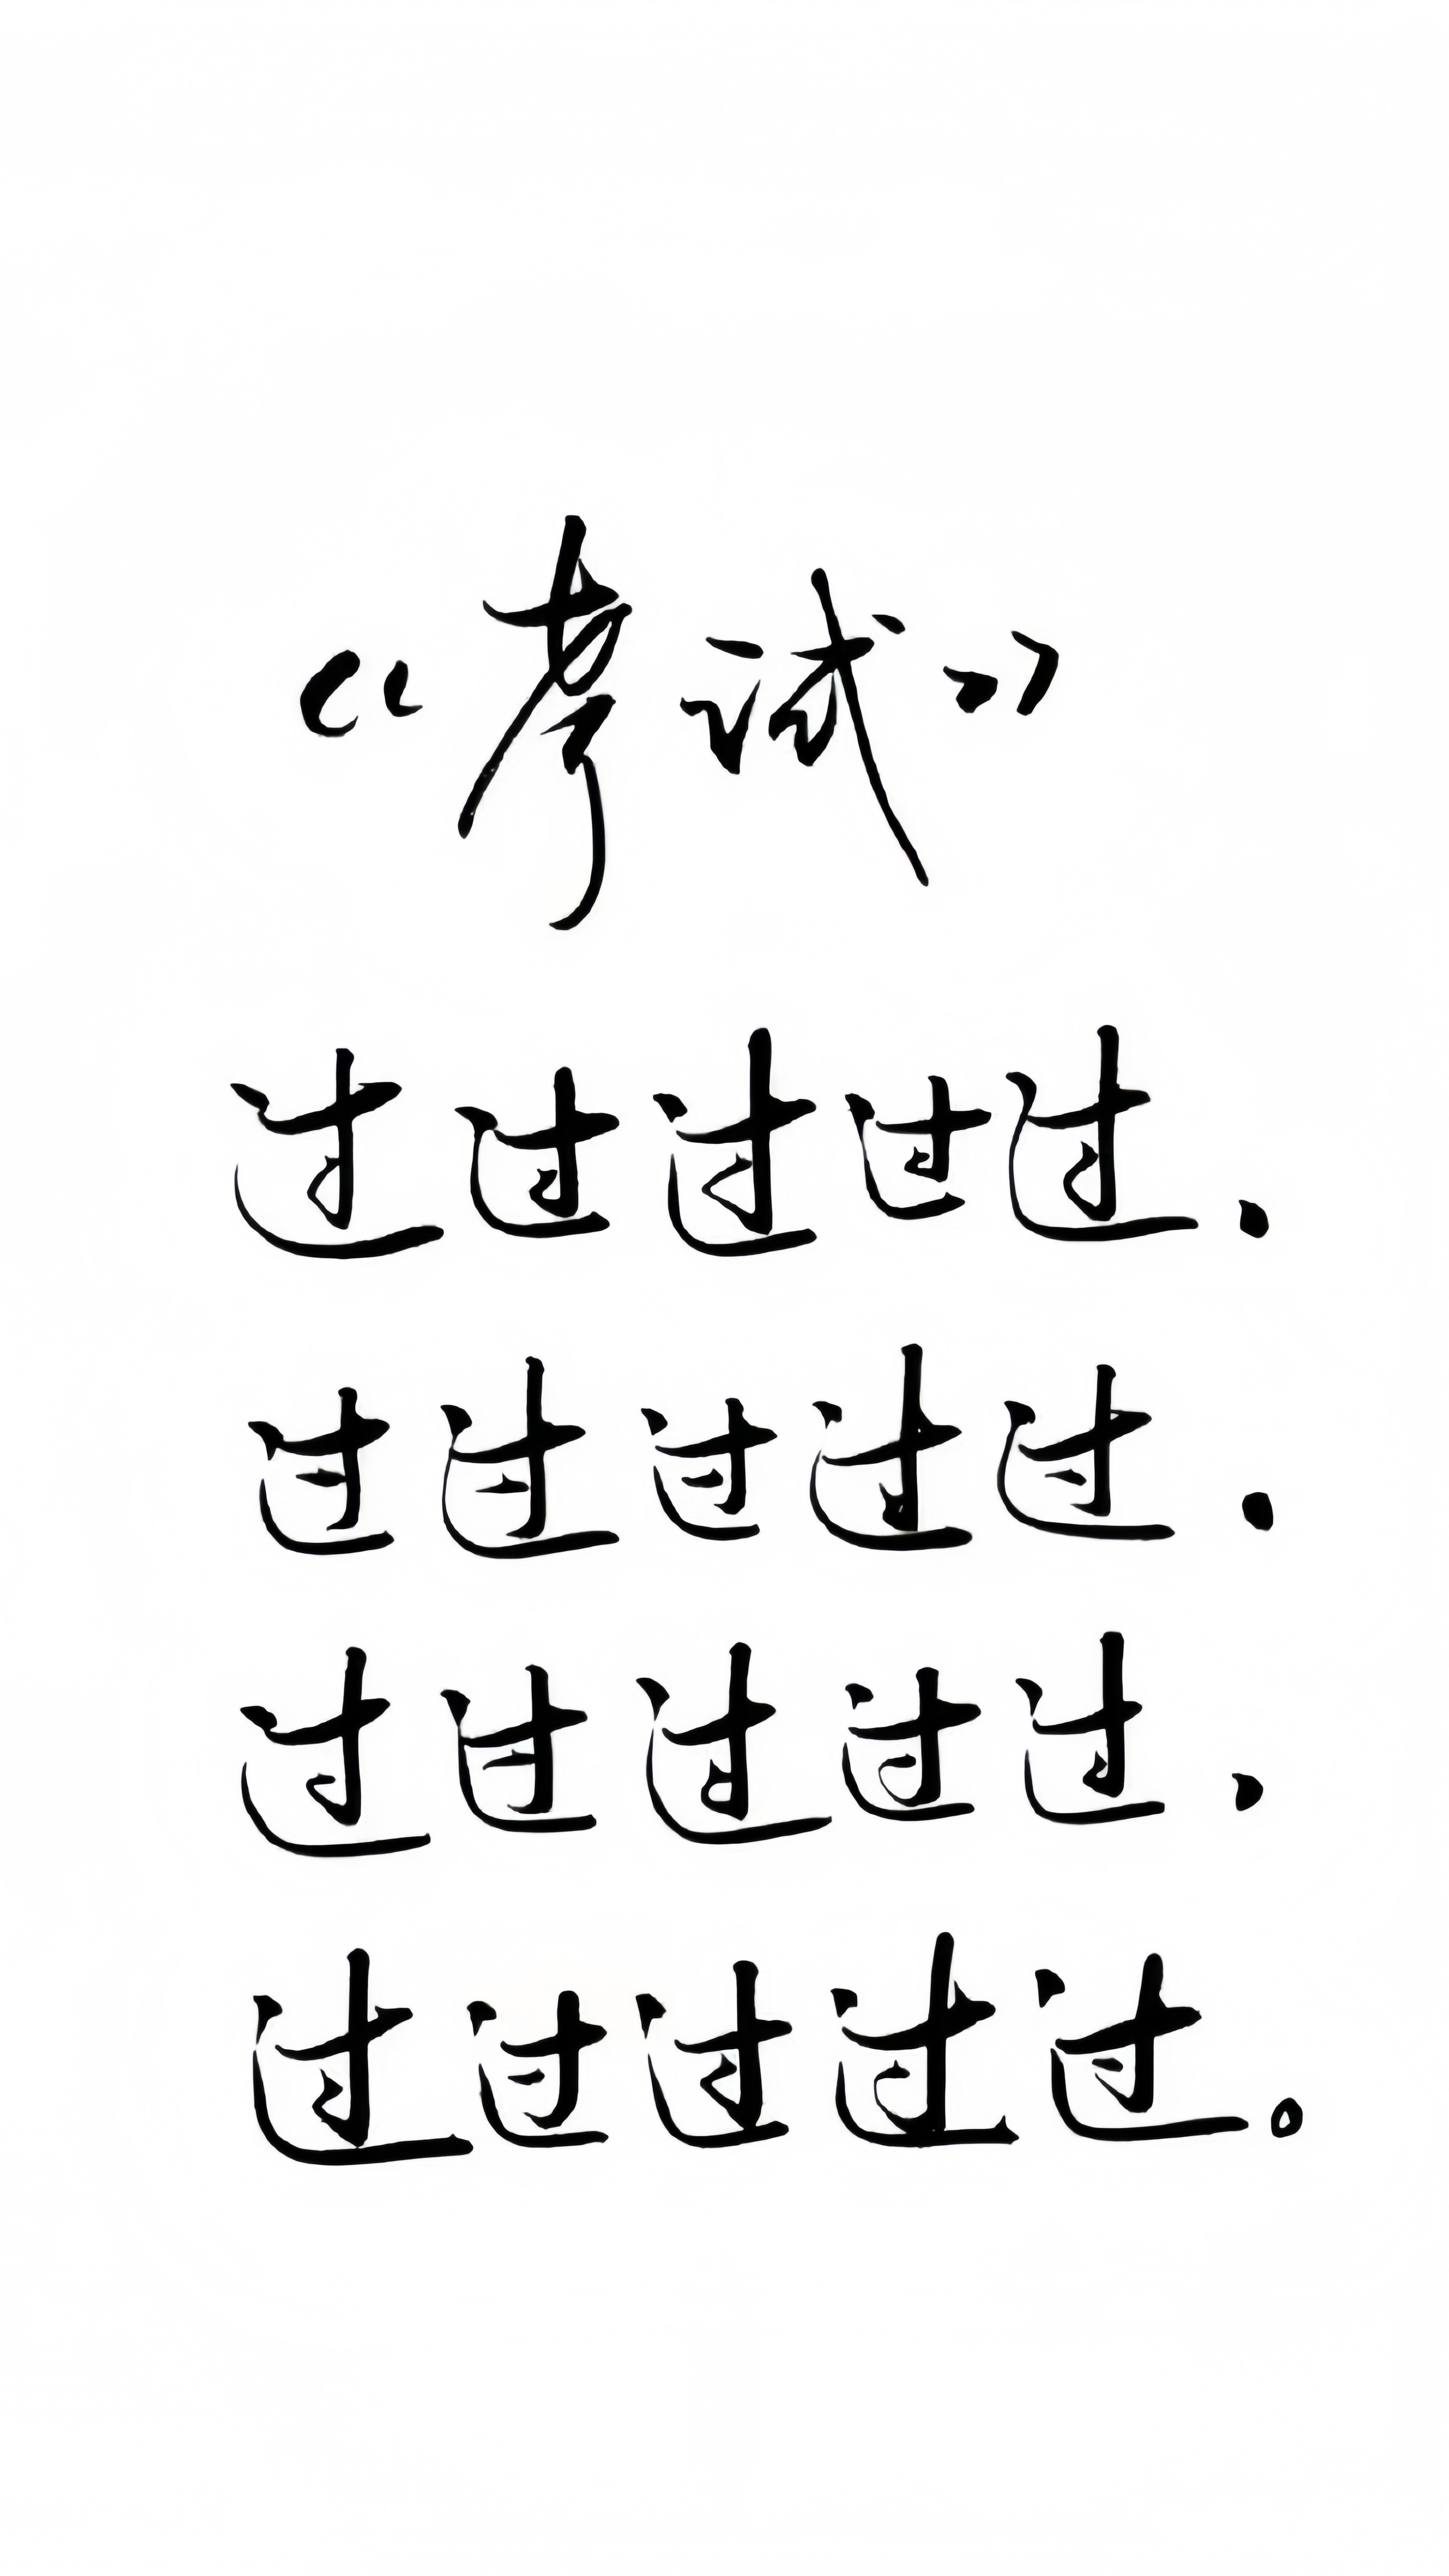 《考试》
过过过过过，
过过过过过。
过过过过过，
过过过过过。